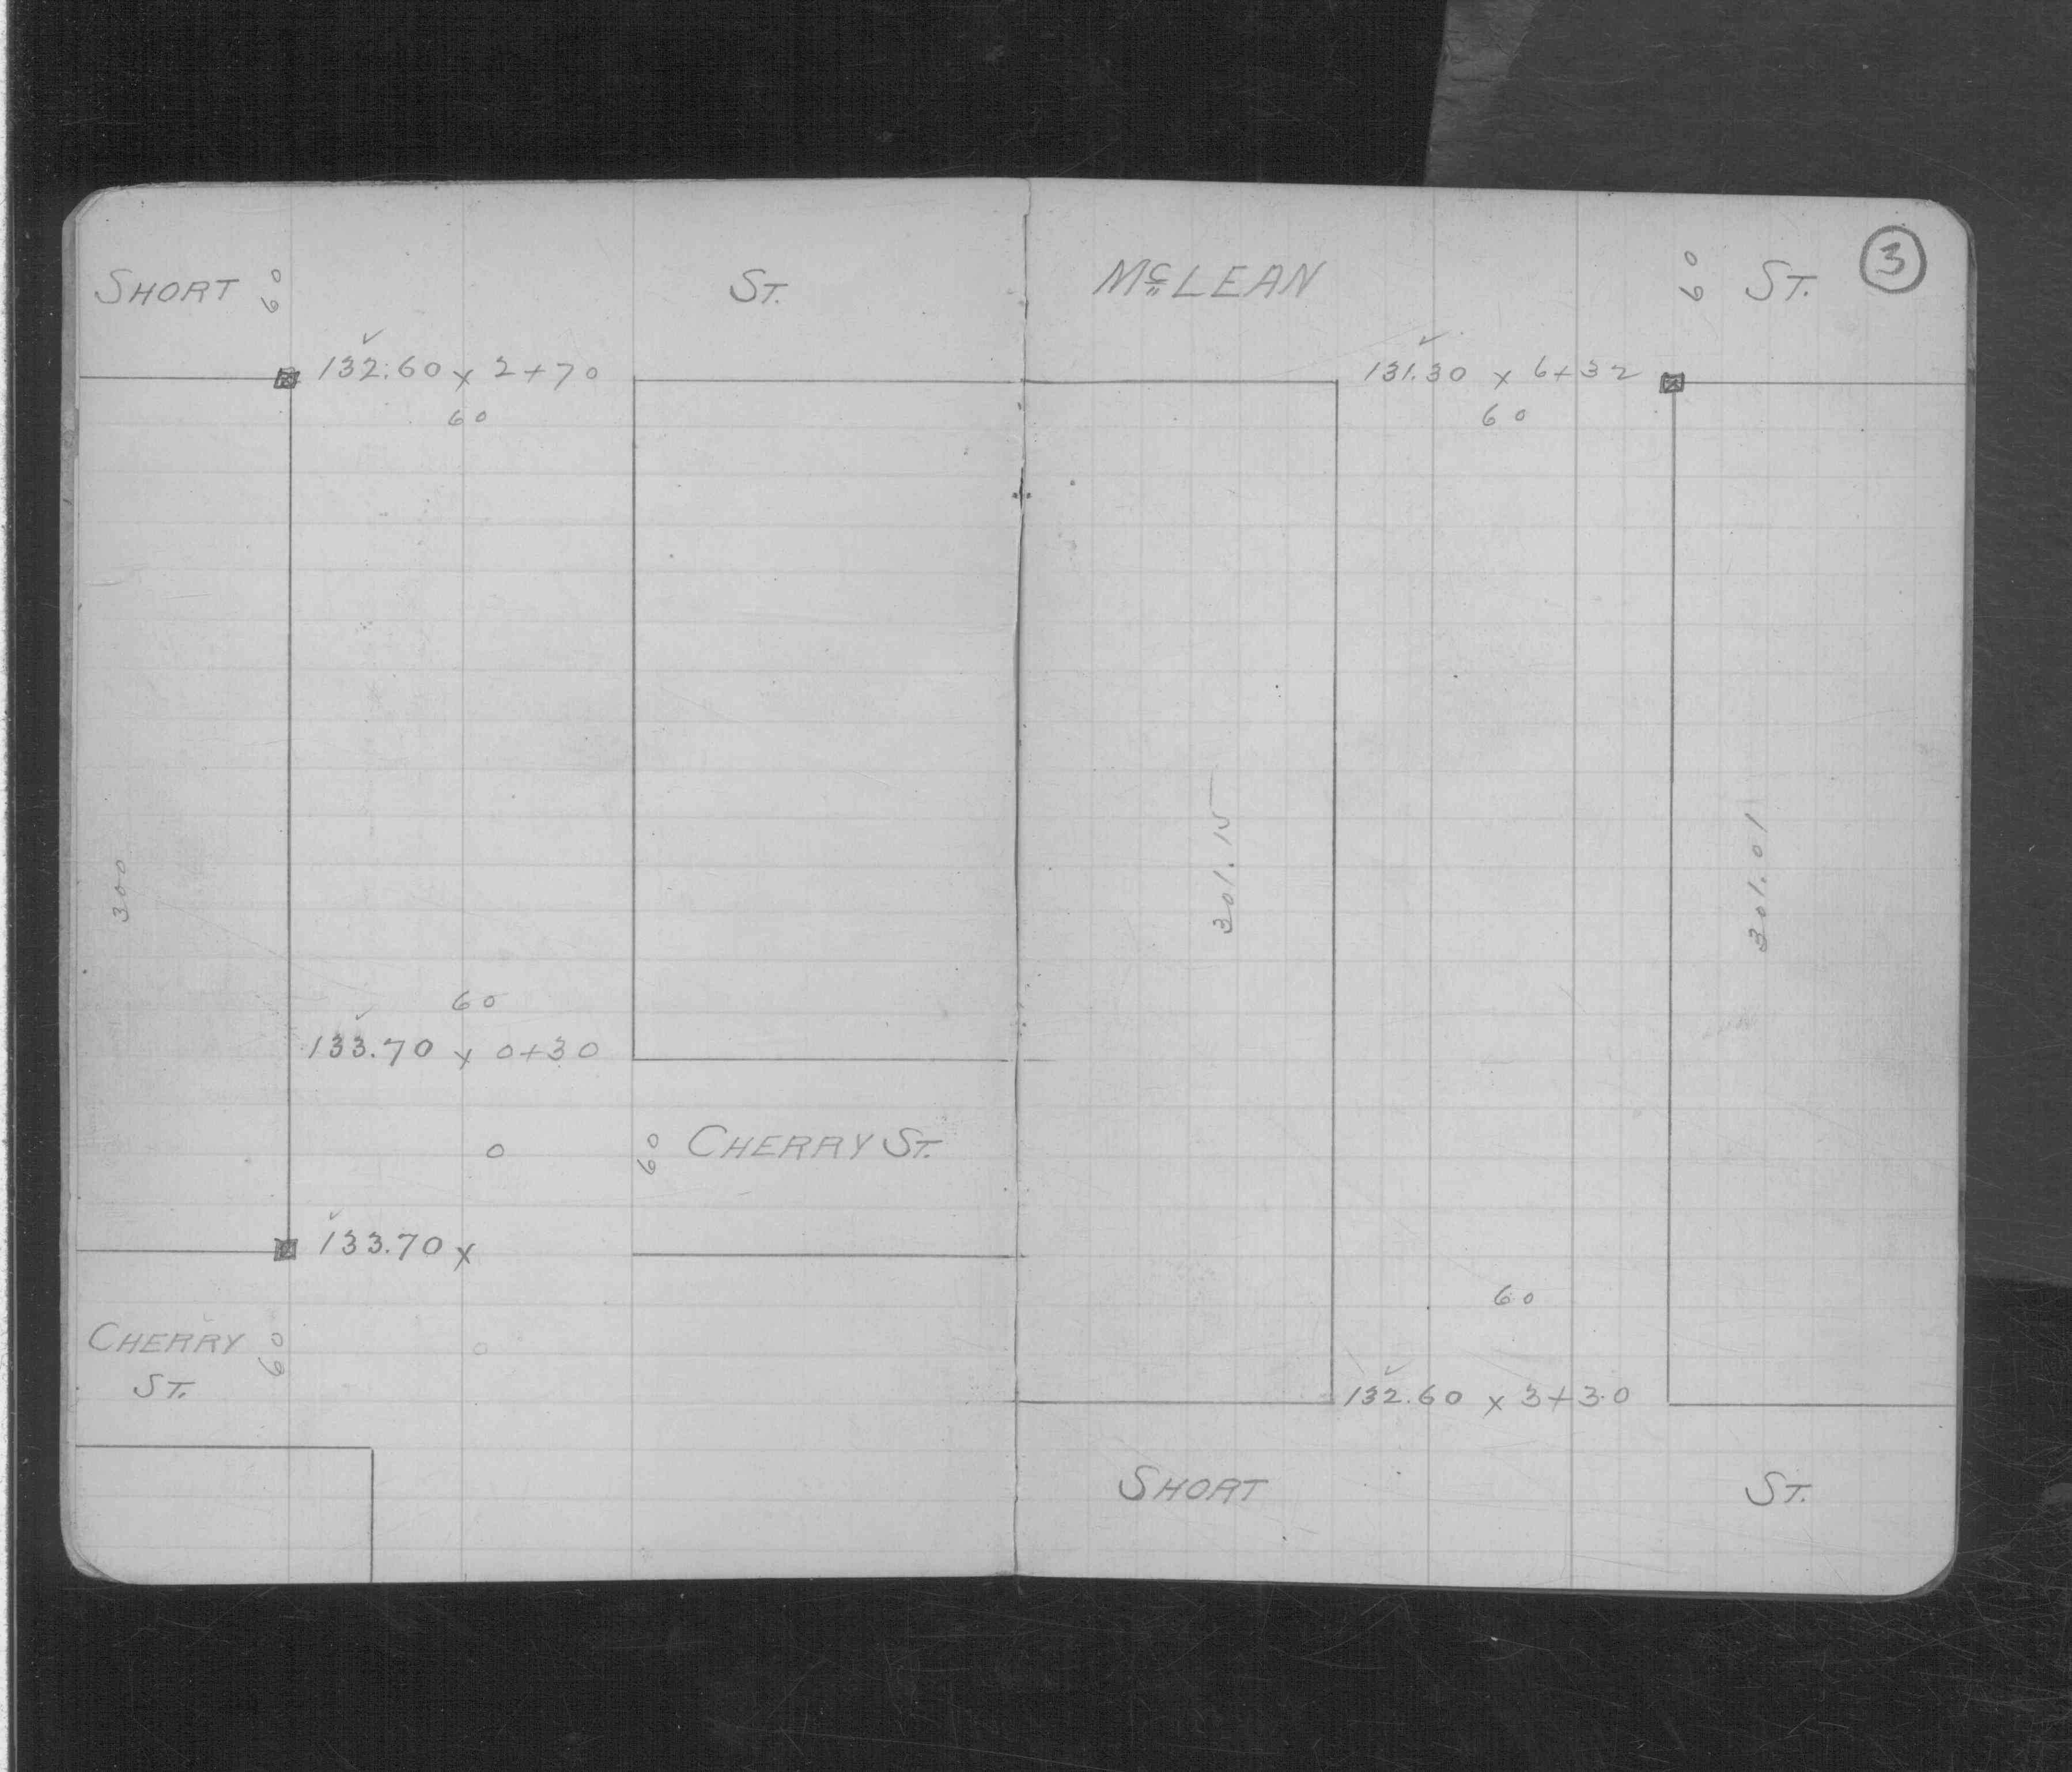 SHORT 60 ST.
132.60 x 2+70
60
300
60
133.70 x 0+30
0 60 CHERRY ST.
133.70 x
CHERRY 60 0
ST.
3
McLEAN 60 ST.
131.30 x 6+32
60
301.15
301.01
60
132.60 x 3+30
SHORT ST.